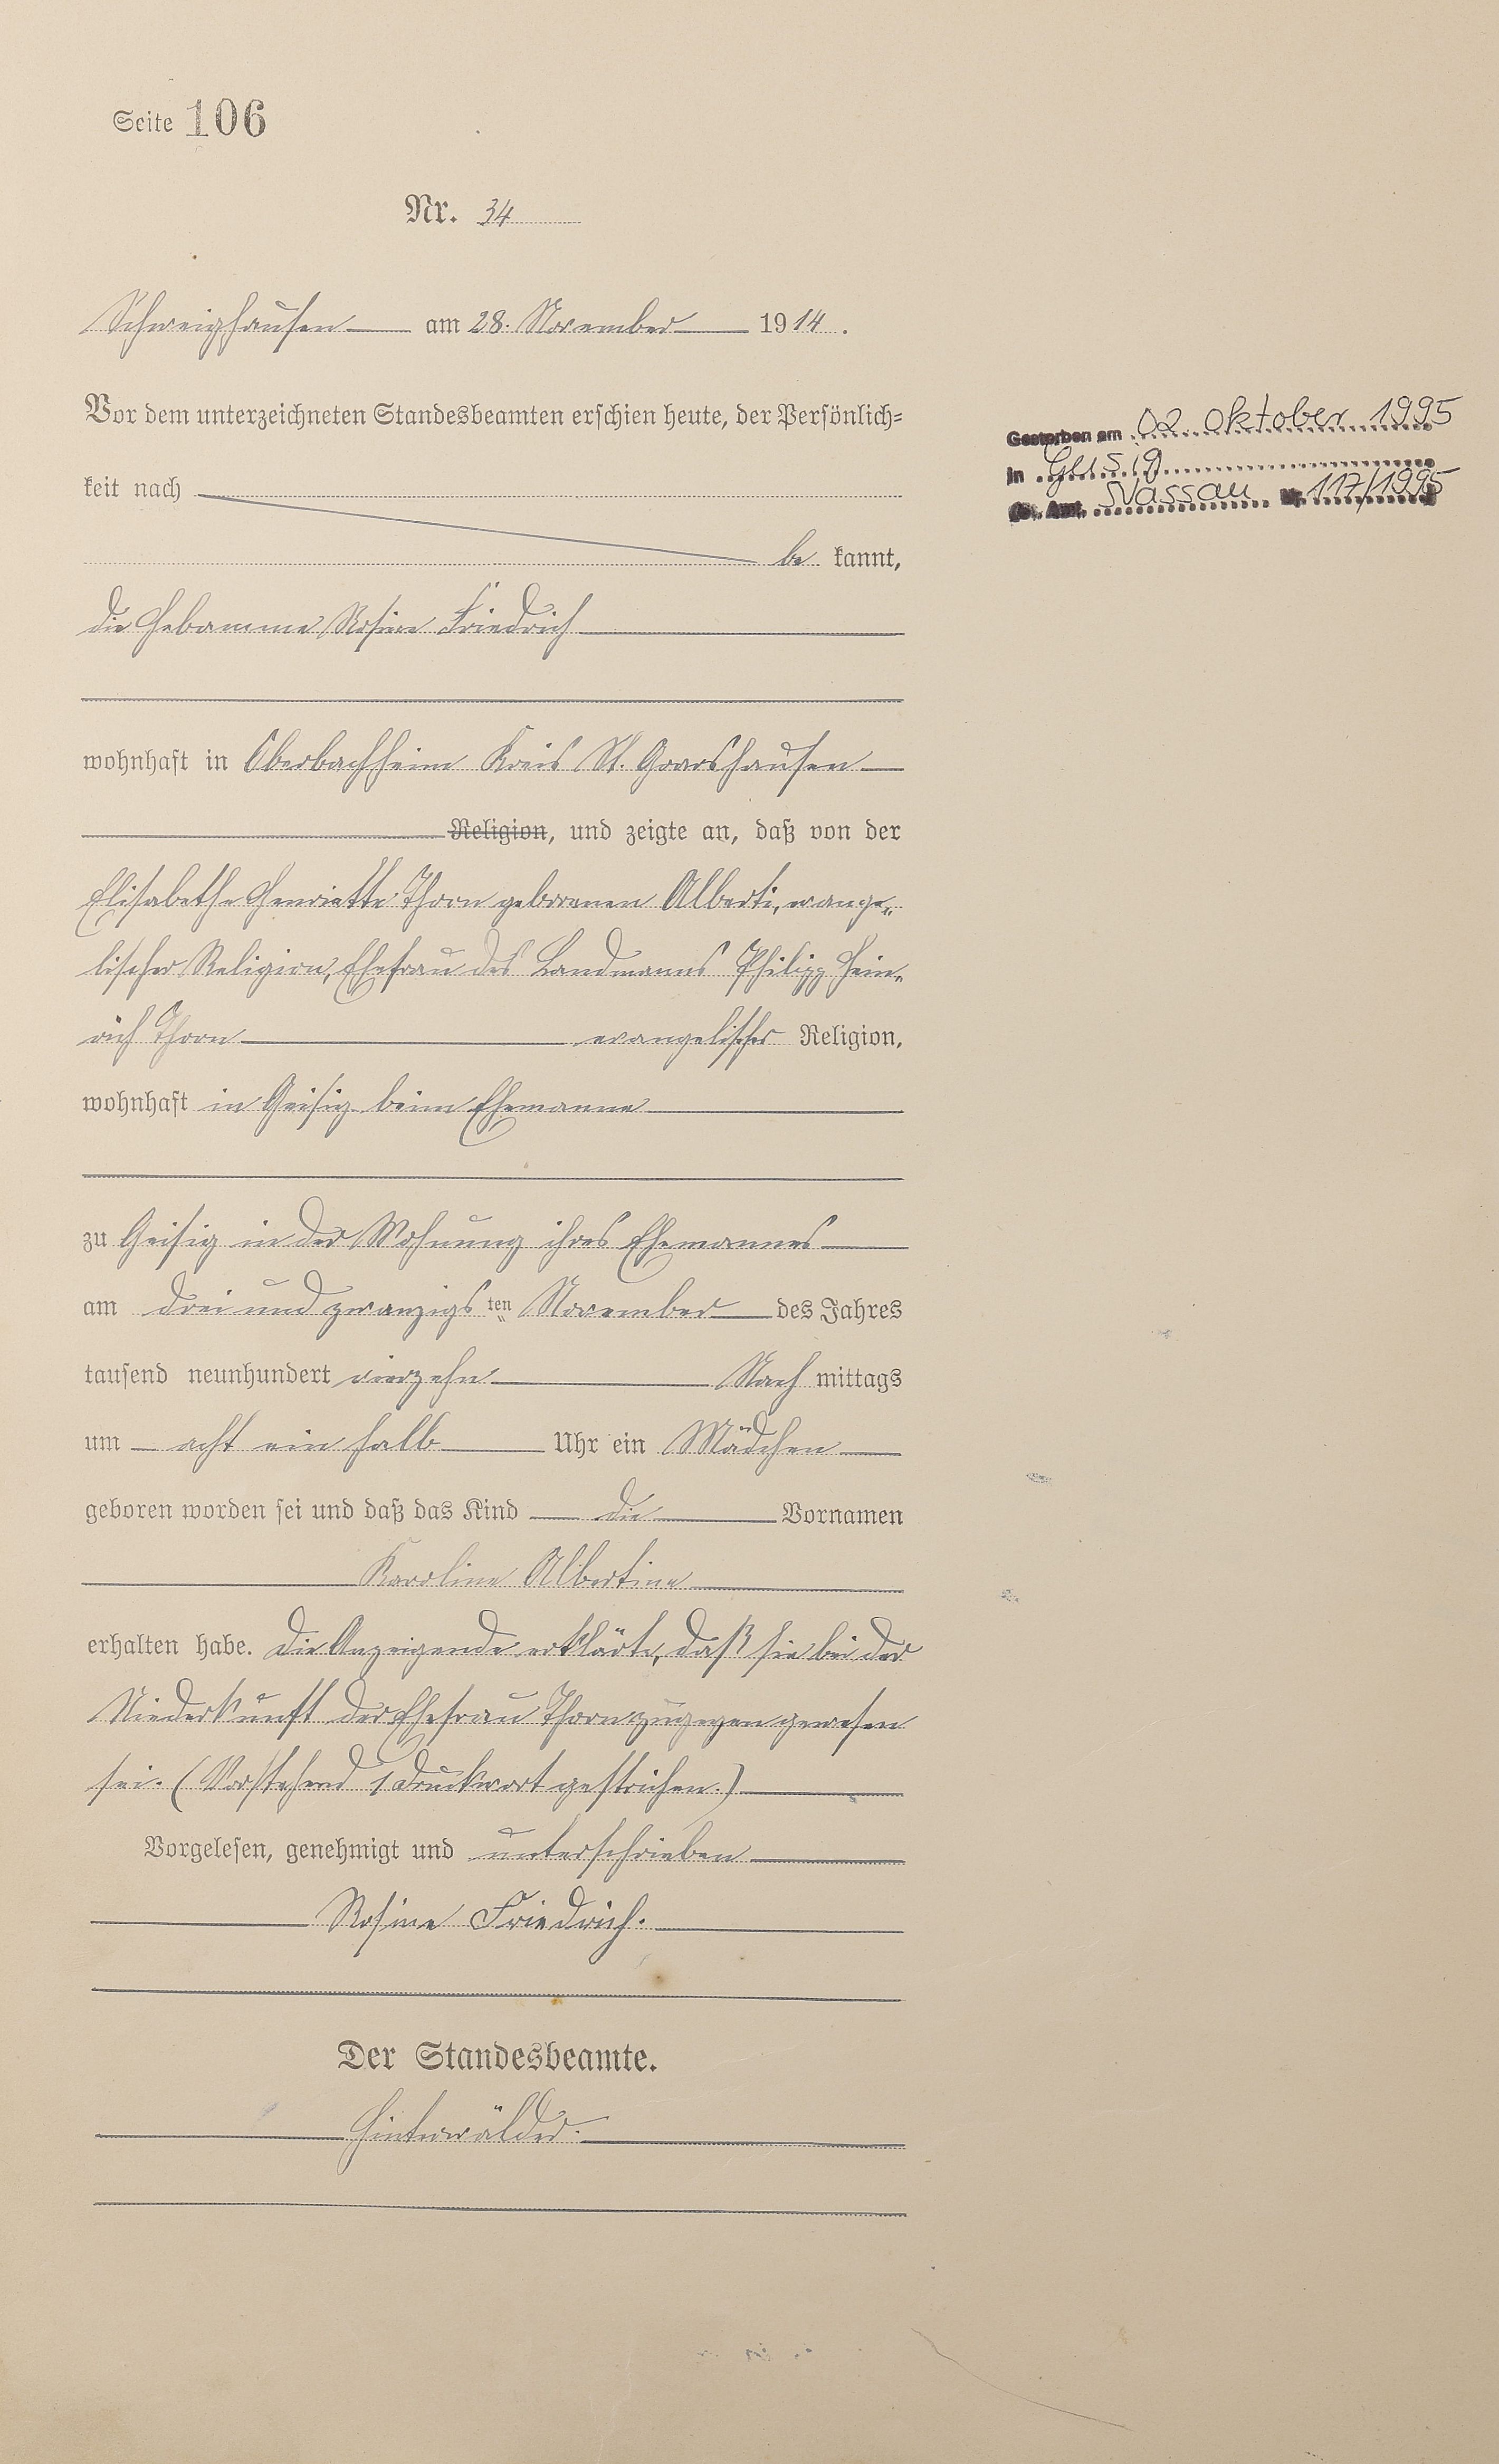 Seite 106
Nr. 34
Schweighausen am 28. November 1914.
Vor dem unterzeichneten Standesbeamten erschien heute, der Persönlich=
keit nach
be kannt,
die Hebamme Rosine Friedrich
wohnhaft in Oberbachheim Kreis St. Goarshausen
Religion, und zeigte an, daß von der
Elisabethe Henriette Thorn geborenen Alberti, evange„
lischer Religion, Ehefrau des Landmanns Philipp Hein„
rich Thorn evangelischer Religion,
wohnhaft in Geisig beim Ehemanne
zu Geisig in der Wohnung ihres Ehemannes
am drei und zwanzigs ten November des Jahres
tausend neunhundert vierzehn Nach mittags
um acht ein halb Uhr ein Mädchen
geboren worden sei und daß das Kind die Vornamen
Karoline Albertine
erhalten habe. Die Anzeigende erklärte, daß sie bei der
Niederkunft der Ehefrau Thorn zugegen gewesen
sei. (Vorstehend 1 Druckwort gestrichen.)
Vorgelesen, genehmigt und unterschrieben
Rosine Friedrich.
Der Standesbeamte.
Hinterwälder.
Gestorben am 02. Oktober 1995
in Geisig
St. Amt. Nassau Nr. 117/1995